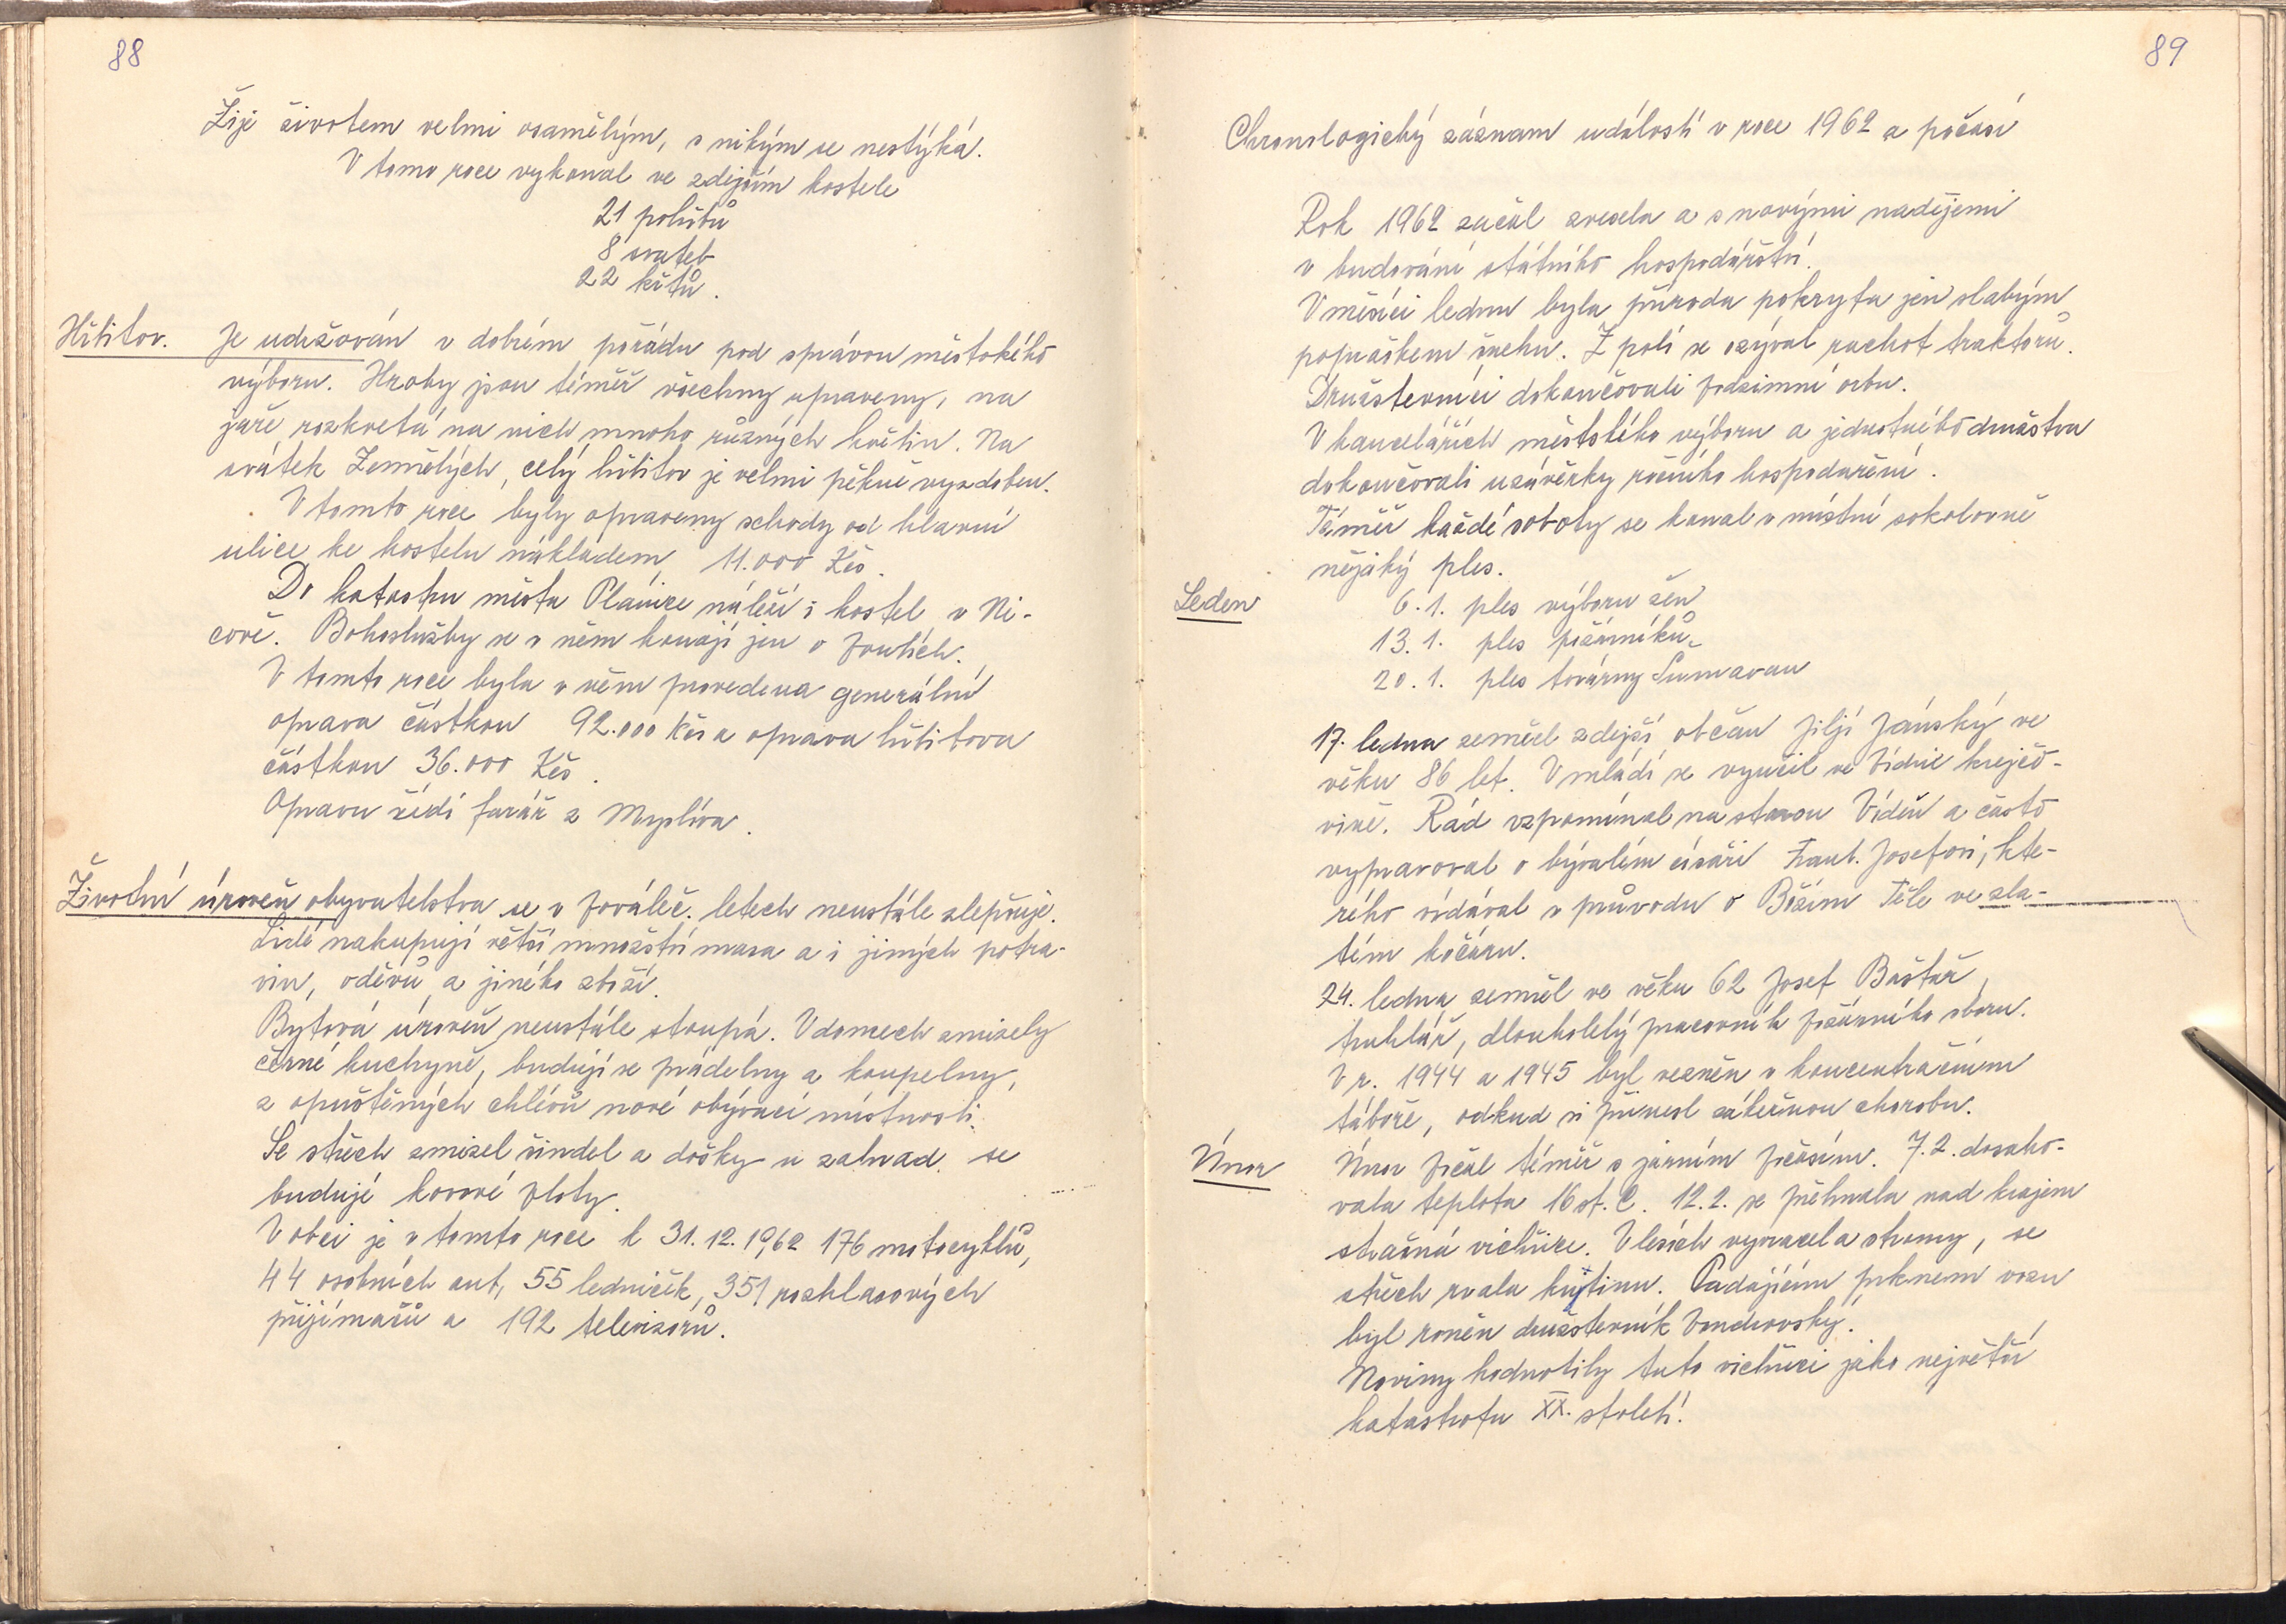 88
Žije životem velmi osamělým, s nikým se nestýká.
V tomo roce vykonal ve zdejším kostele
21 pohřbů
8 svateb
22 křtů.
Hřbitov. Je udržován v dobrém pořádu pod správou městského
výboru. Hroby jsou téměř všechny upraveny, na
jaře rozkvetá na nich mnoho různých květin. Na
svátek Zemřelých, celý hřbitov je velmi pěkně vyzdoben.
V tomto roce byly opraveny schody od hlavní
ulice ke kostelu nákladem 11.000 Kčs.
Do katastru města Plánice náleží i kostel v Ni-
cově. Bohoslužby se v něm konají jen o poutích.
V tomto roce byla v něm provedena generální
oprava částkou 92.000 Kčs a oprava hřbitova
částkou 36.000 Kčs.
Opravu řídí farář z Myslíva.
Životní úroveň obyvatelstva se v pováleč. letech neustále zlepšuje.
Lidé nakupují větší množství masa a i jiných potra-
vin, oděvů a jiného zboží.
Bytová úroveň neustále stoupá. V domech zmizely
černé kuchyně, budují se prádelny a koupelny,
z opuštěných chlévů nové obývací místnosti.
Se střech zmizel šindel a došky u zahrad se
budují kovové ploty.
V obci je v tomto roce k 31.12.1962 176 motocyklů,
44 osobních aut, 55 ledniček, 351 rozhlasových
přijímačů a 192 televizorů.
89
Chronologický záznam událostí v roce 1962 a počasí
Rok 1962 začal zvesela a s novými nadějemi
v budování státního hospodářství.
V měsíci lednu byla příroda pokryta jen slabým
popraškem sněhu. Z polí se ozýval rachot traktorů.
Družstevníci dokončovali podzimní orbu.
V kancelářích městského výboru a jednotného družstva
dokončovali uzávěrky ročního hospodaření.
Téměř každé soboty se konal v místní sokolovně
nějaký ples.
Leden 6.1. ples výboru žen
13.1. ples požárníků
20.1. ples továrny Šumavan
17. ledna zemřel zdejší občan Jiljí Jánský ve
věku 86 let. V mládí se vyučil ve Vídni krejčo-
vině. Rád vzpomínal na starou Vídeň a často
vypravoval o bývalém císaři Frant. Josefovi, kte-
rého vídával v průvodu o Božím Těle ve zla-
tém kočáru.
24. ledna zemřel ve věku 62 Josef Baštař,
truhlář, dlouholetý pracovník požárního sboru.
V r. 1944 a 1945 byl vezněn v koncentračním
táboře, odkud si přinesl zákeřnou chorobu.
Únor Únor počal téměř s jarním počasím. 7.2. dosaho-
vala teplota 16 st. C. 12.2. se přehnala nad krajem
strašná vichřice. V lesích vyvracela stromy, se
střech rvala krytinu. Padajícím prknem vozu
byl raněn družstevník Vondrovský.
Noviny hodnotily tuto vichřici jako největší
katastrofu XX. století.